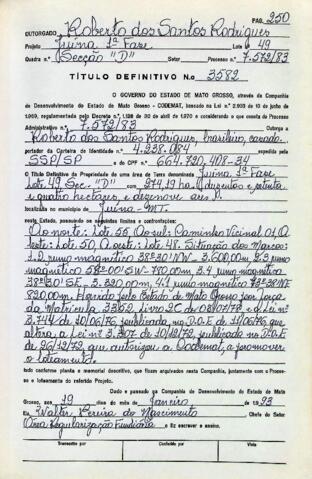 PAG. 250
OUTORGADO Roberto dos Santos Rodrigues
Projeto Juina 1ª Fase Lote 49
Quadra n.º (Secção "D") Setor Processo n.º 7.572/83
TÍTULO DEFINITIVO N.o 3582
O GOVERNO DO ESTADO DE MATO GROSSO, através da Companhia
de Desenvolvimento do Estado de Mato Grosso - CODEMAT, baseado na Lei n.º 2.903 de 10 de junho
de 1969, regulamentada pelo Decreto n.º 1.138 de 30 de abril de 1970 e considerando o que consta do Processo
Administrativo n.º 7.572/83 Outorga a
Roberto dos Santos Rodrigues, brasileiro, casado
portador da Carteira de Identidade n.º 4.238.084 expedida pela
SSP/SP e do CPF n.º 664.720.408-34
O Título Definitivo de Propriedade de uma área de Terra denominada Juina 1ª Fase
Lote 49 Sec. "D" com 274,19 ha (duzentos e setenta
e quatro hectares, e dezenove ares).
localizada no município de Juina-MT.
neste Estado, possuindo os seguintes limites e confrontações:
Ao norte: Lote 55, Ao sul: Caminho Vicinal 01, A
leste: Lote 50, A oeste: Lote 48. Situação dos Marcos:
1.2 rumo magnético 38º30'NW - 3.600,00m. 2.3 rumo
magnético 58º00'SW - 780,00m. 3.4 rumo magnético
38º30'SE - 3.320,00m, 4.1 rumo magnético NE
820,00m. Havido pelo Estado de Mato Grosso por força
da Matrícula 3362, Livro 2C de 08/07/78 e a Lei nº
3.744 de 10/06/76, publicada no D.O.E de 11/06/76, que
altera a Lei nº 3.307 de 18/12/72, publicada no D.O.E
de 26/12/72, que autorizou a Codemat, a promover
o loteamento.
tudo conforme planta e memorial descritivo, que ficam arquivados nesta Companhia, juntamente com o Processo
e loteamento do referido Projeto.
Dado e passado na Companhia de Desenvolvimento do Estado de Mato
Grosso, aos 19 dias do mês de Janeiro de 1993
Eu Walter Pereira do Nascimento Chefe do Setor
Área Regularização Fundiária o fiz escrever e assino.
Transcrito por Conferido por Visto